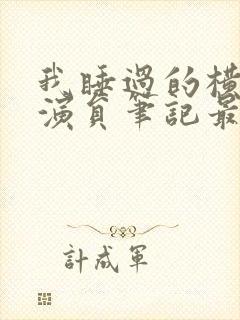 我睡過的橫
演員筆記最
計成軍